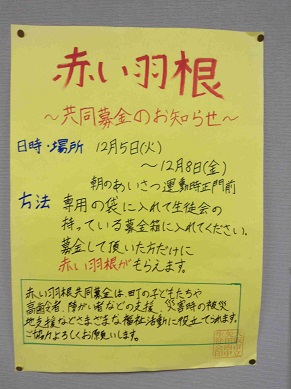 赤い羽根
～共同募金のお知らせ～
日時・場所 12月5日(火)
～12月8日(金)
朝のあいさつ運動時正門前
方法 専用の袋に入れて生徒会の
持っている募金箱に入れてください。
募金して頂いた方だけに
赤い羽根がもらえます。
赤い羽根共同募金は、町の子どもたちや
高齢者、障がい者などの支援、災害時の被災
地支援などさまざまな福祉活動に役立てられます。
ご協力よろしくお願いします。